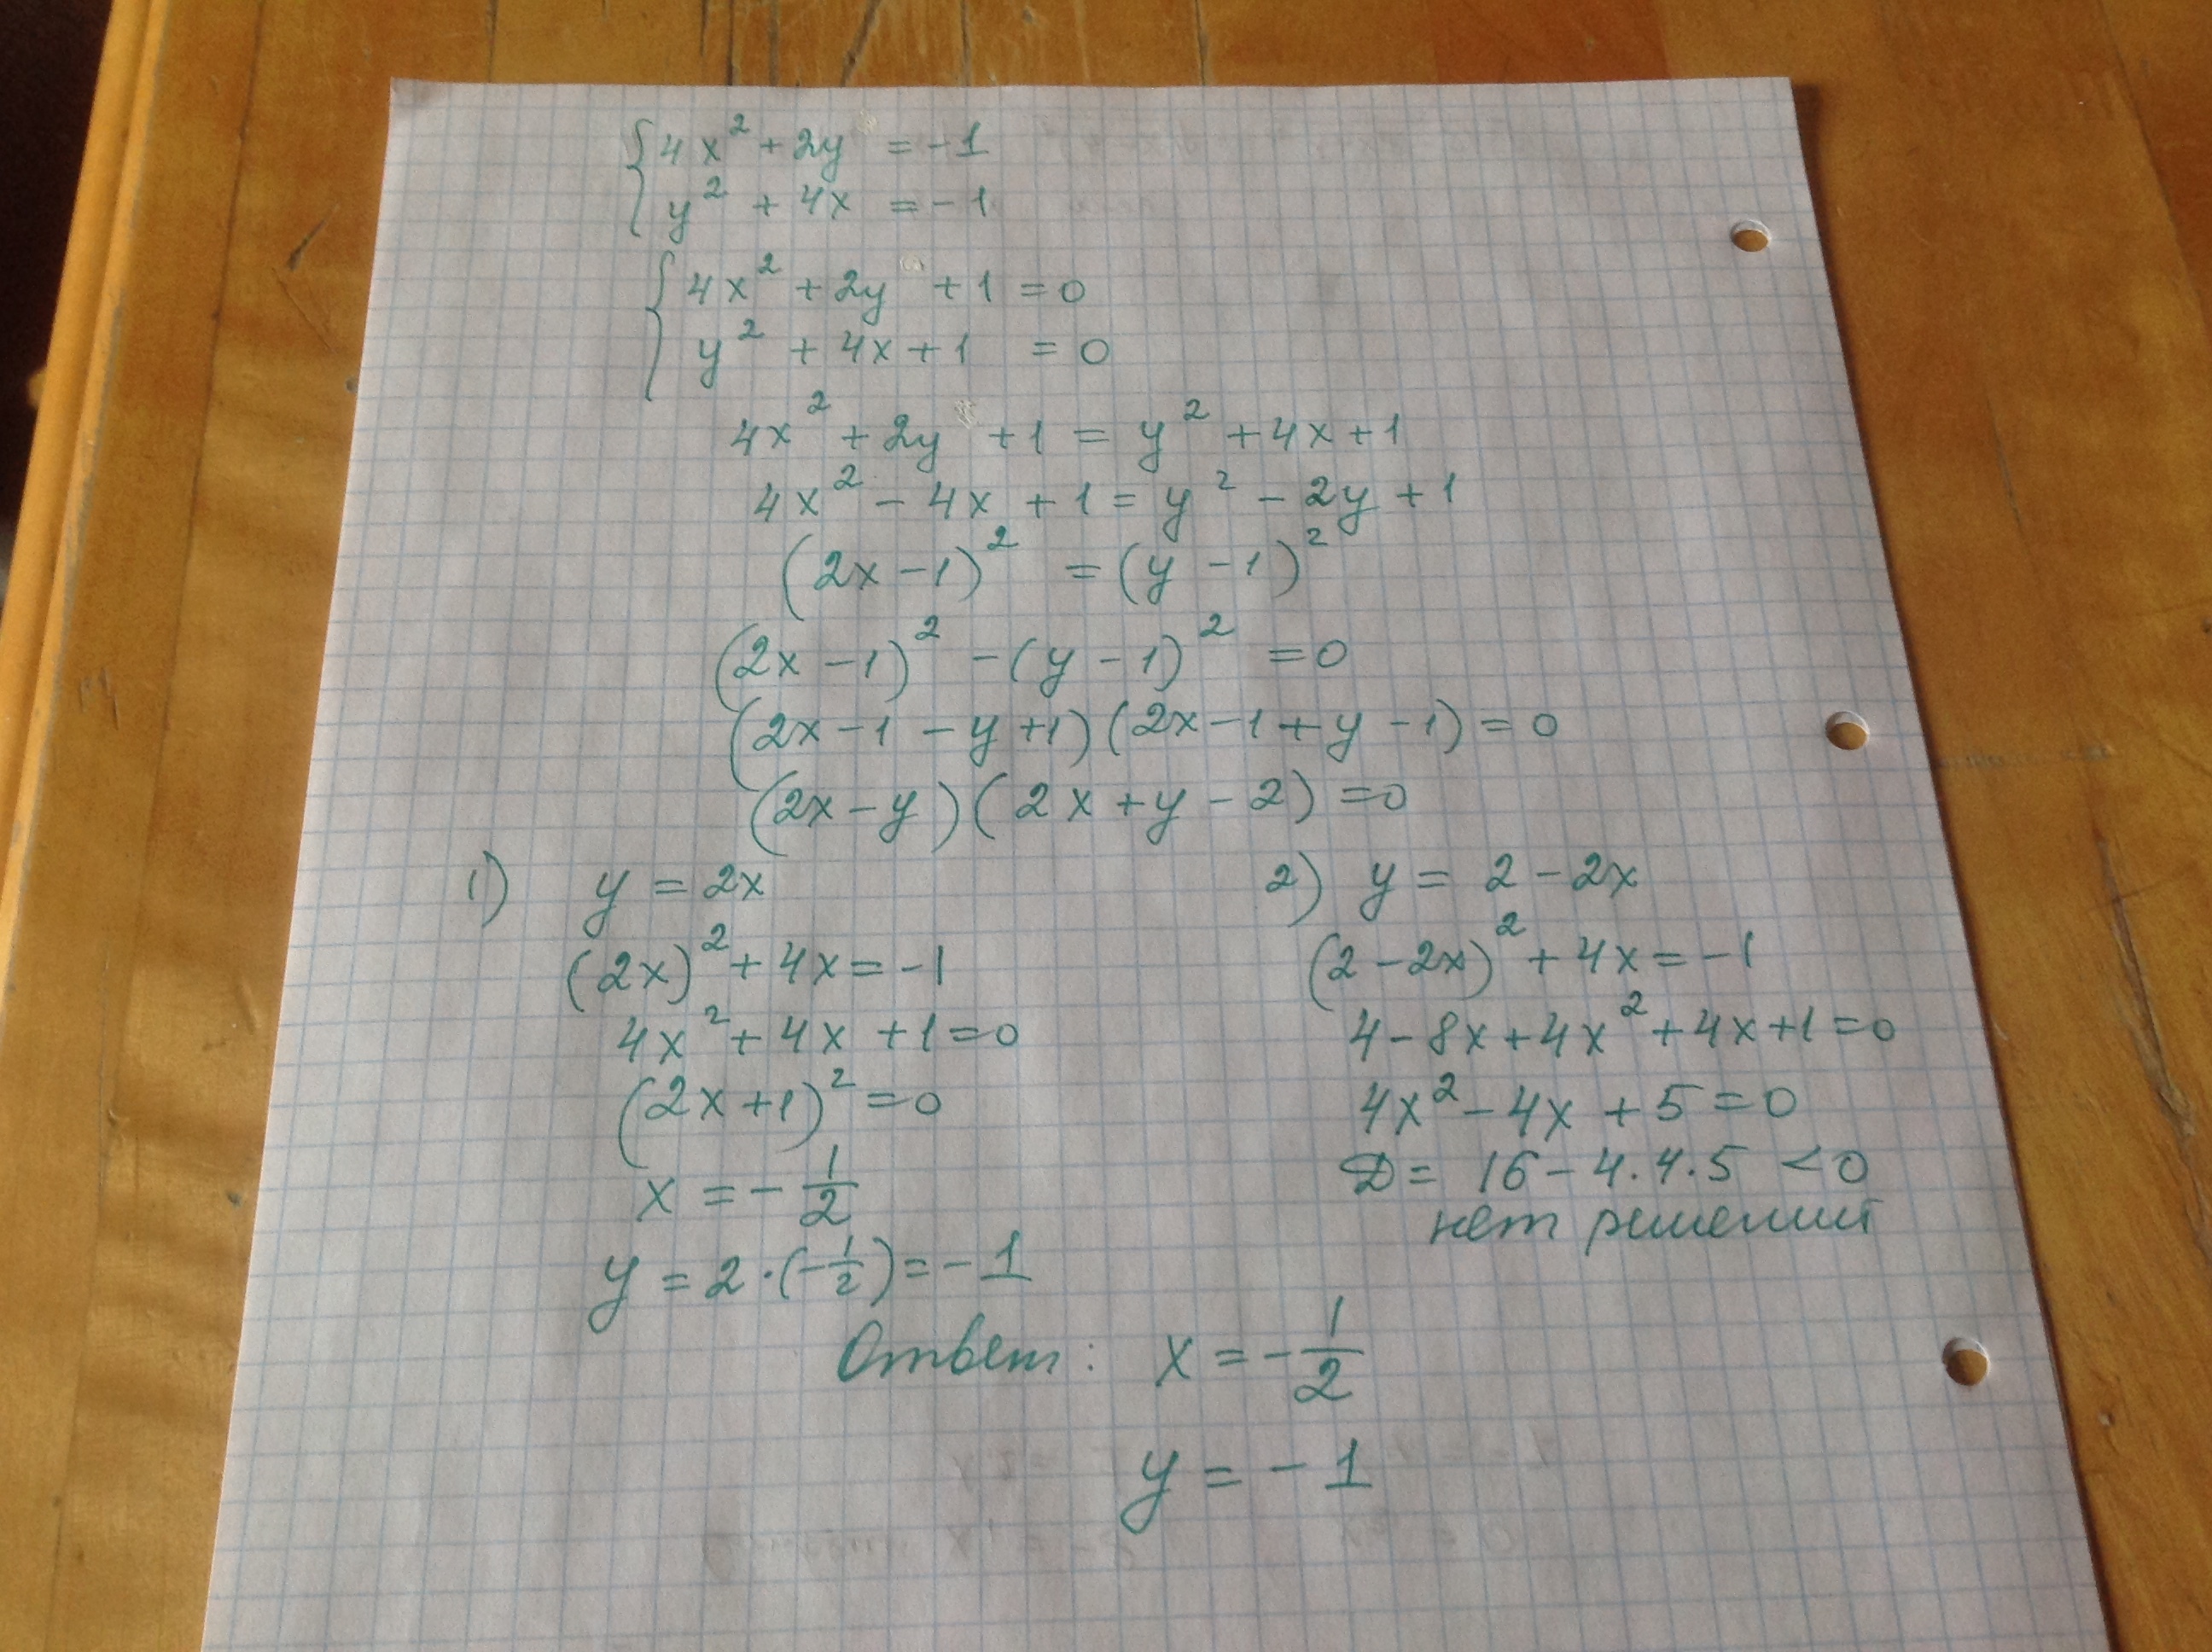 {4x² + 2y = -1
y² + 4x = -1
{4x² + 2y + 1 = 0
y² + 4x + 1 = 0
4x² + 2y + 1 = y² + 4x + 1
4x² - 4x + 1 = y² - 2y + 1
(2x - 1)² = (y - 1)²
(2x - 1)² - (y - 1)² = 0
(2x - 1 - y + 1)(2x - 1 + y - 1) = 0
(2x - y)(2x + y - 2) = 0
1) y = 2x
(2x)² + 4x = -1
4x² + 4x + 1 = 0
(2x + 1)² = 0
x = - 1/2
y = 2 · (-1/2) = -1
2) y = 2 - 2x
(2 - 2x)² + 4x = -1
4 - 8x + 4x² + 4x + 1 = 0
4x² - 4x + 5 = 0
D = 16 - 4 · 4 · 5 < 0
нет решений
Ответ: x = - 1/2
y = -1